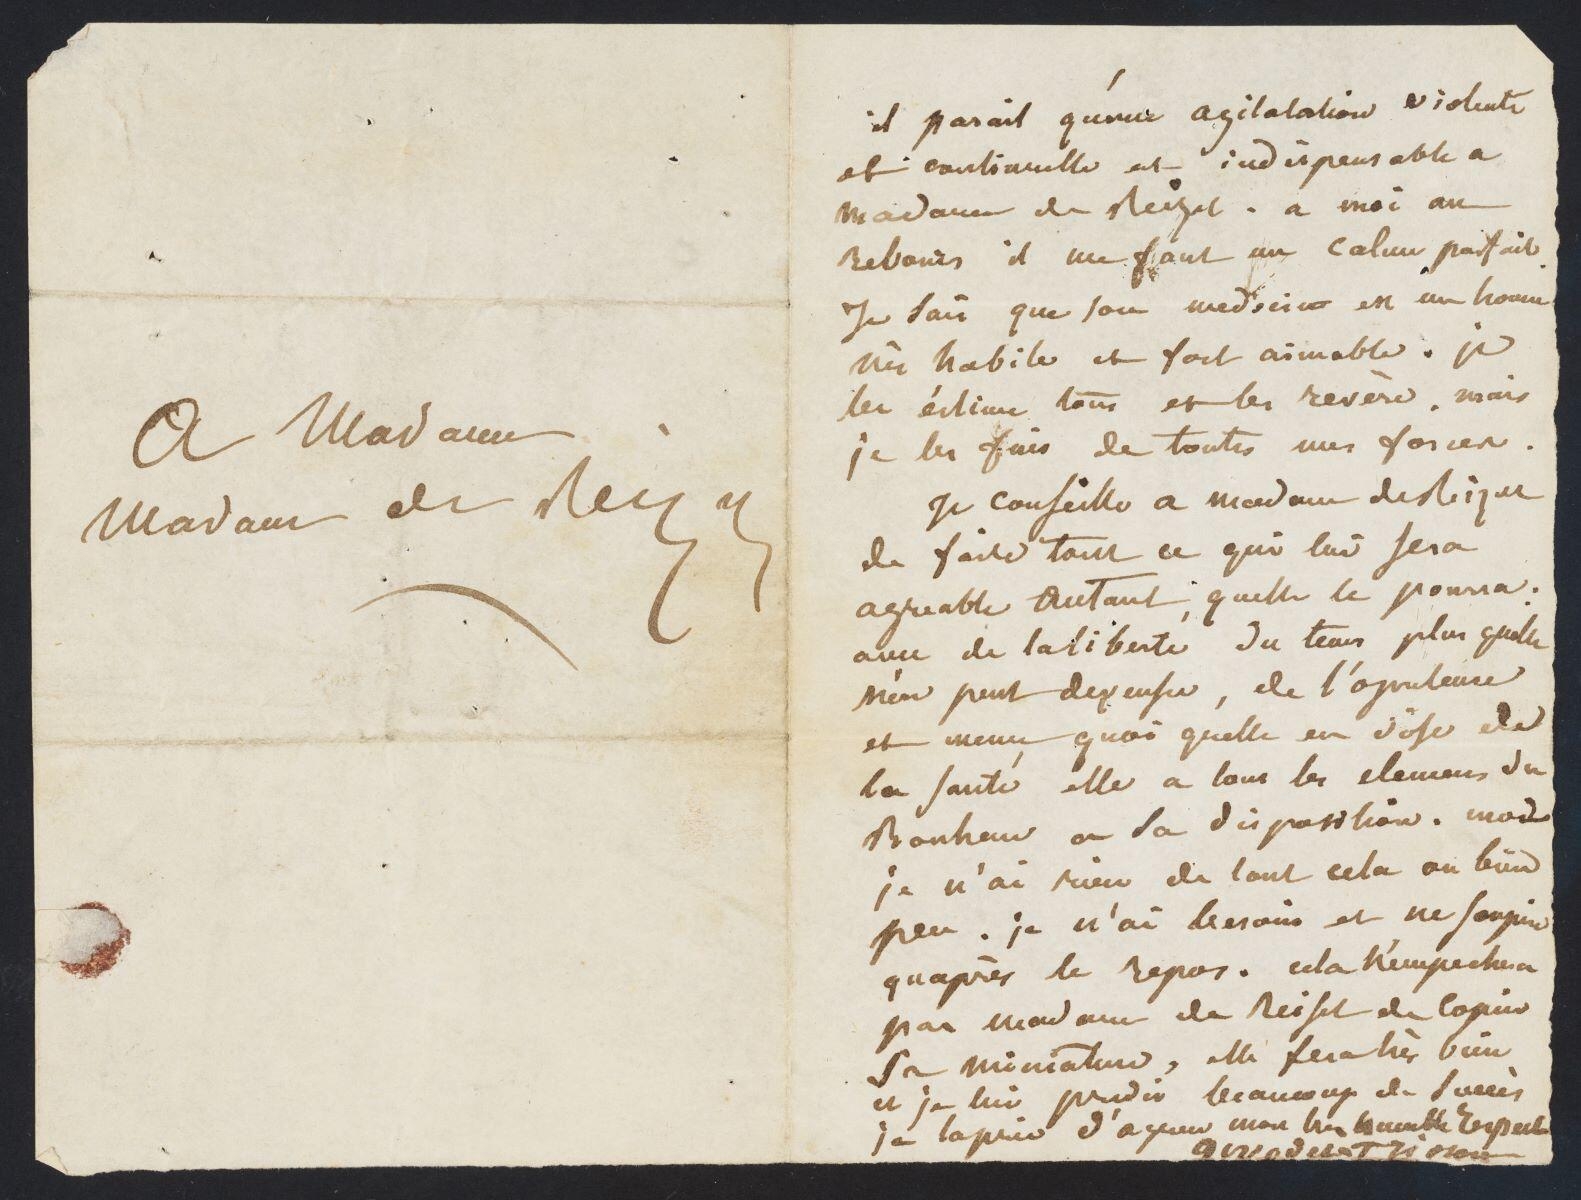 A Madame
Madame de Reizet
il parait qu'une agitatation violente
et continuelle est indispensable a
Madame de Reizet. a moi au
Rebours il me faut un calme parfait.
Je sais que son medecin est un homme
très habile et fort aimable. je
les éstime tous et les revère. mais
je les fuis de toutes mes forces.
Je conseille a madame de Reizet
de faire tout ce qui lui sera
agreable autant quelle le pourra.
avec de la liberté du tems plus quelle
n'en peut depenser, de l'opulence
et meme quoi quelle en dise de
la santé elle a tous les elemens du
Bonheur a sa disposition. moi
je n'ai rien de tout cela ou bien
peu. je n'ai besoin et ne soupire
quaprès le repos. cela n'empechera
pas madame de Reiset de copier
sa miniature, elle fera très bien
et je lui predis beaucoup de succès
je la prie d'agreer mon très humble respect
Girodet Trioson